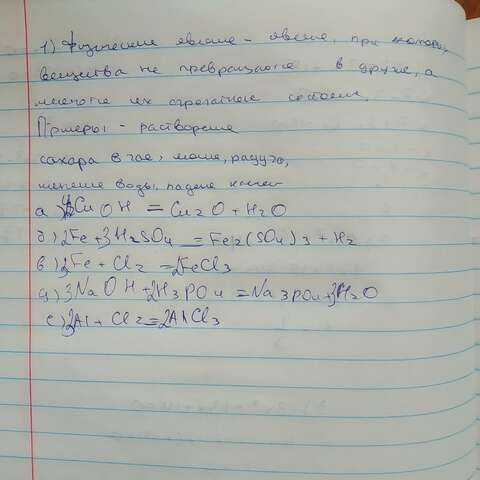 1) Физические явление - явление, при котором
вещества не превращаются в другие, а
меняют их агрегатные состояния.
Примеры - растворение
сахара в чае, радуга,
кипение воды, падение
а) 2CuOH = Cu2O + H2O
б) 2Fe + 3H2SO4 = Fe2(SO4)3 + H2
в) 2Fe + Cl2 = 2FeCl3
д) 3NaOH + H3PO4 = Na3PO4 + 3H2O
е) 2Al + Cl2 = 2AlCl3